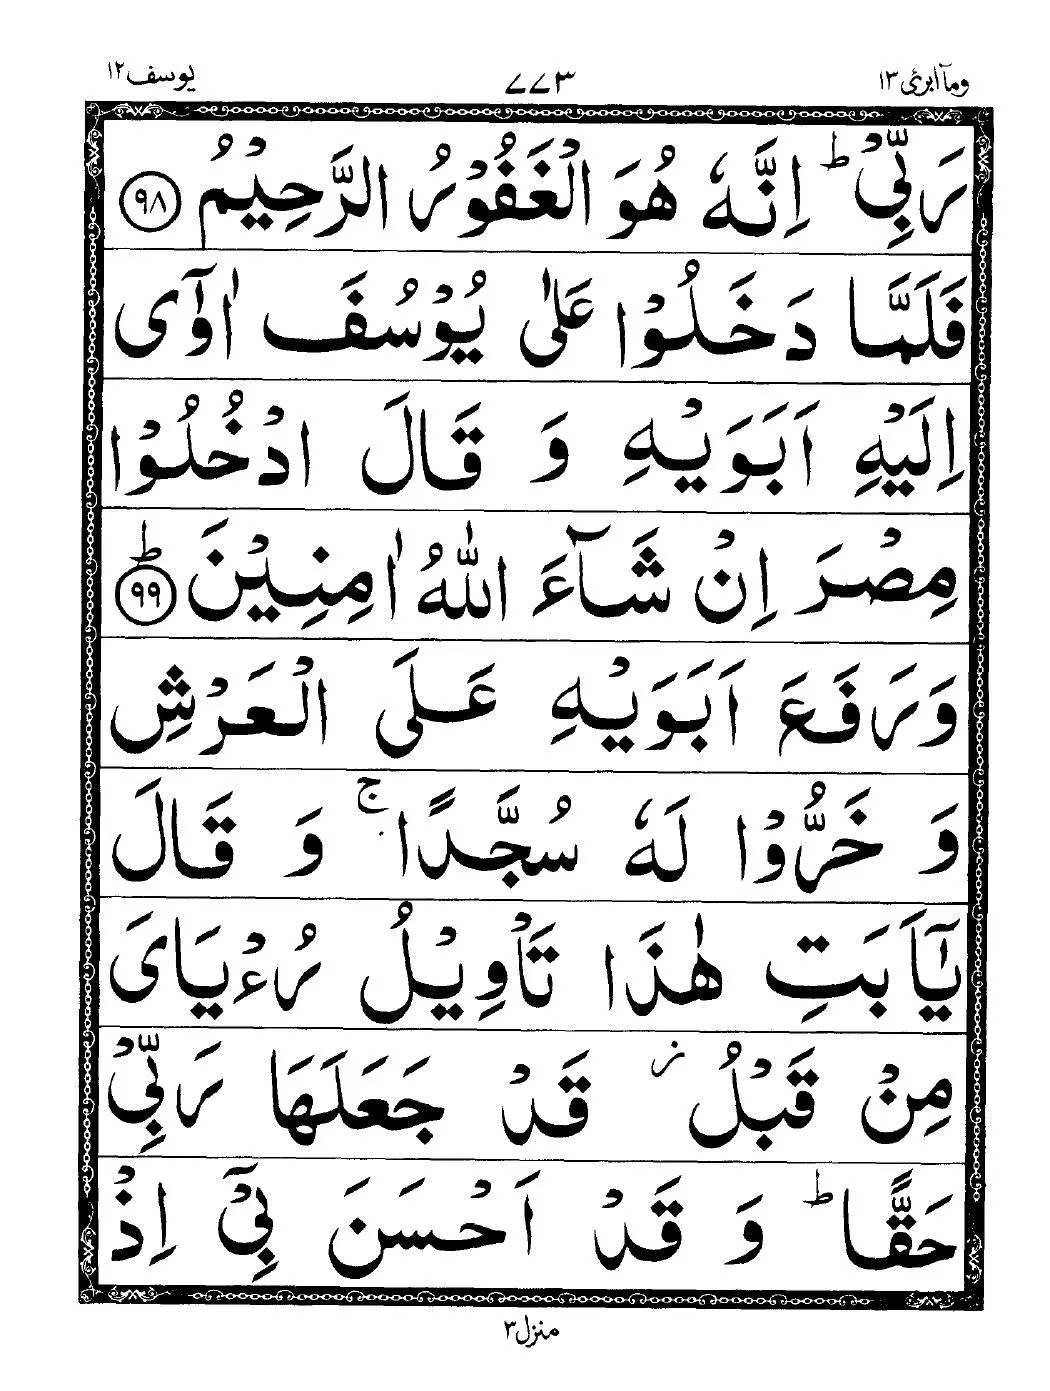 ومآ ابرئ ١٣ ٧٧٣ يوسف ١٢
رَبِّيْ ؕ اِنَّهٗ هُوَ الْغَفُوْرُ الرَّحِيْمُ ﴿٩٨﴾
فَلَمَّا دَخَلُوْا عَلٰى يُوْسُفَ اٰوٰٓى
اِلَيْهِ اَبَوَيْهِ وَ قَالَ ادْخُلُوْا
مِصْرَ اِنْ شَآءَ اللّٰهُ اٰمِنِيْنَ ؕ﴿٩٩﴾
وَ رَفَعَ اَبَوَيْهِ عَلَى الْعَرْشِ
وَ خَرُّوْا لَهٗ سُجَّدًا ۚ وَ قَالَ
يٰۤاَبَتِ هٰذَا تَاْوِيْلُ رُءْيَايَ
مِنْ قَبْلُ ؗ قَدْ جَعَلَهَا رَبِّيْ
حَقًّا ؕ وَ قَدْ اَحْسَنَ بِيْۤ اِذْ
منزل ٣